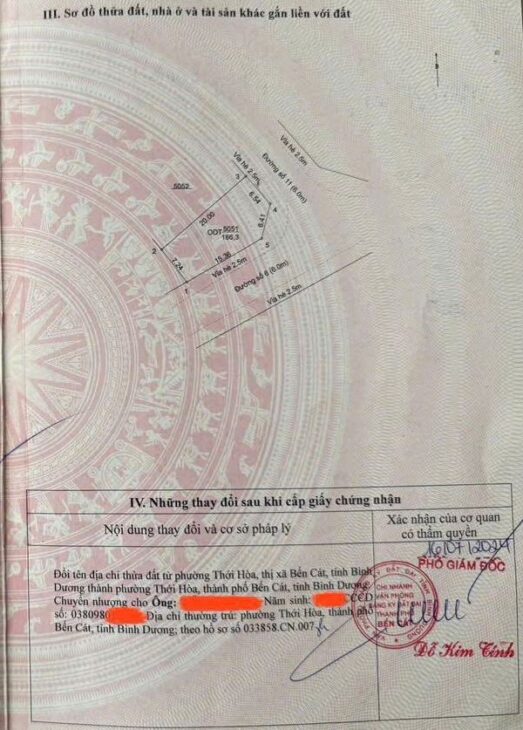 III. Sơ đồ thửa đất, nhà ở và tài sản khác gắn liền với đất
Vỉa hè 2.5m
Đường số 11 (6.0m)
Vỉa hè 2.5m
5052
3
6.54
4
20.00
ODT 5051
166.3
6.41
5
2
7.24
15.36
1
Vỉa hè 2.5m
Đường số 6 (6.0m)
Vỉa hè 2.5m
IV. Những thay đổi sau khi cấp giấy chứng nhận
Nội dung thay đổi và cơ sở pháp lý
Xác nhận của cơ quan
có thẩm quyền
16/07/2024
PHÓ GIÁM ĐỐC
Đổi tên địa chỉ thửa đất từ phường Thới Hòa, thị xã Bến Cát, tỉnh Bình
Dương thành phường Thới Hòa, thành phố Bến Cát, tỉnh Bình Dương.
Chuyển nhượng cho Ông: Năm sinh: CCCD
số: 0380980 Địa chỉ thường trú: phường Thới Hòa, thành phố
Bến Cát, tỉnh Bình Dương; theo hồ sơ số 033858.CN.007
CHI NHÁNH
VĂN PHÒNG
ĐĂNG KÝ ĐẤT ĐAI
THÀNH PHỐ
BẾN CÁT
Đỗ Kim Cính